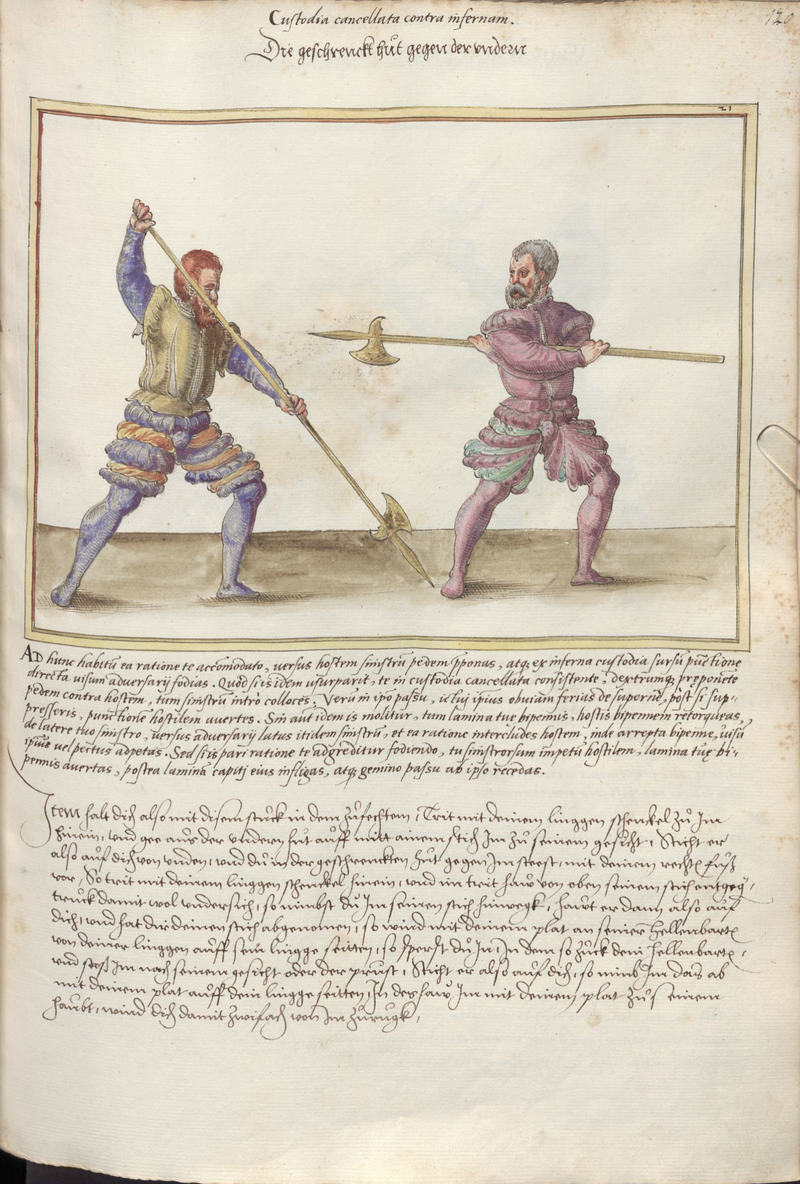 Custodia cancellata contra infernam.
120
Die geschrenckt hůt gegen der vndern
21
AD hunc habitū ea ratione te accōmodato, uersus hostem sinistrū pedem ꝓponas, atq; ex inferna custodia sursū pūctione
directa uisum adversarij fodias. Quod si is idem usurparit, te in custodia cancellata consistente, dextrumq; preponete
pedem contra hostem, tum sinistrū intrò colloces. Verū in ipō passu, ictui ipsius obuiam ferias de supernè, post si sup-
presseris, punctionē hostilem auertes. Sin aūt idem is molitur, tum lamina tuę bipennis, hostis bipennem retorqueas,
de latere tuo sinistro, uersus adversarij latus itidem sinistrū, et ea ratione intercludes hostem, inde arrepta bipenne, uisū
ipsius uel pectus adpetas. Sed si is pari ratione te adgreditur fodiendo, tu sinistrorsum impetū hostilem, lamina tuę bi-
pennis auertas, postea lamina capiti eius infligas, atq; gemino passu ab ipso recedas.
Item halt dich also mit disem stuck in dem zůfechten, Trit mit deinem linggen schenckel zů Im
hinein, vnd gee aus der vndern hůt auff mitt ainem stich Im zů seinem gesicht, Sticht er
also auf dich von vnden, vnd du in der geschrenckten hůt gegen Im steest, mit deinem rechtē fůß
vor, So trit mit deinem linggen schenckel hinein, vnd im trit haw von oben seinem stich entgegē,
truck damit wol vndersich, so nimbst du Im seinen stich hinwegk, hawt er dann also auf
dich, vnd hat dir deinen stich abgenomen, so wind mit deinem plat an seiner hellenbartē
von deiner linggen auff sein lingge seitten, so sperst du In, In dem so zuck dein hellenbartē,
vnd stoß Im nach seinem gesicht oder der prust, Sticht er also auf dich, so nimb Im das ab
mit deinem plat auff dein lingge seitten, In des haw Im mit deinem plat zů seinem
haubt, wind dich damit zwifach von Im zurugk,